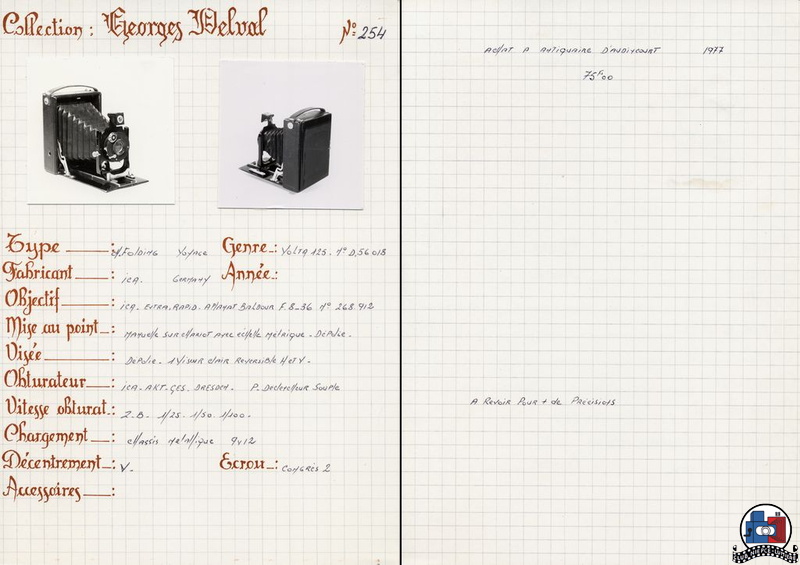 Collection : Georges Delval N°: 254
Type : Folding Voyage Genre : Volta 125. N° D,56018
Fabricant : ICA. Germany Année :
Objectif : ICA. Extra. Rapid. F.8_36 N° 268.912
Mise au point : Manuelle sur chariot avec echelle métrique - Depolie.
Visée : Depolie. 1 Viseur clair Reversible H et V -
Obturateur : ICA. AKT. GES. Dresden. P. Declencheur Souple
Vitesse obturat. : Z.B. 1/25. 1/50. 1/100-
Chargement : chassis metallique 9x12
Décentrement : V- Ecrou : Congrès 2
Accessoires :
Achat a Antiquaire D'Audincourt 1977
75F00
A Revoir Pour + de Précisions